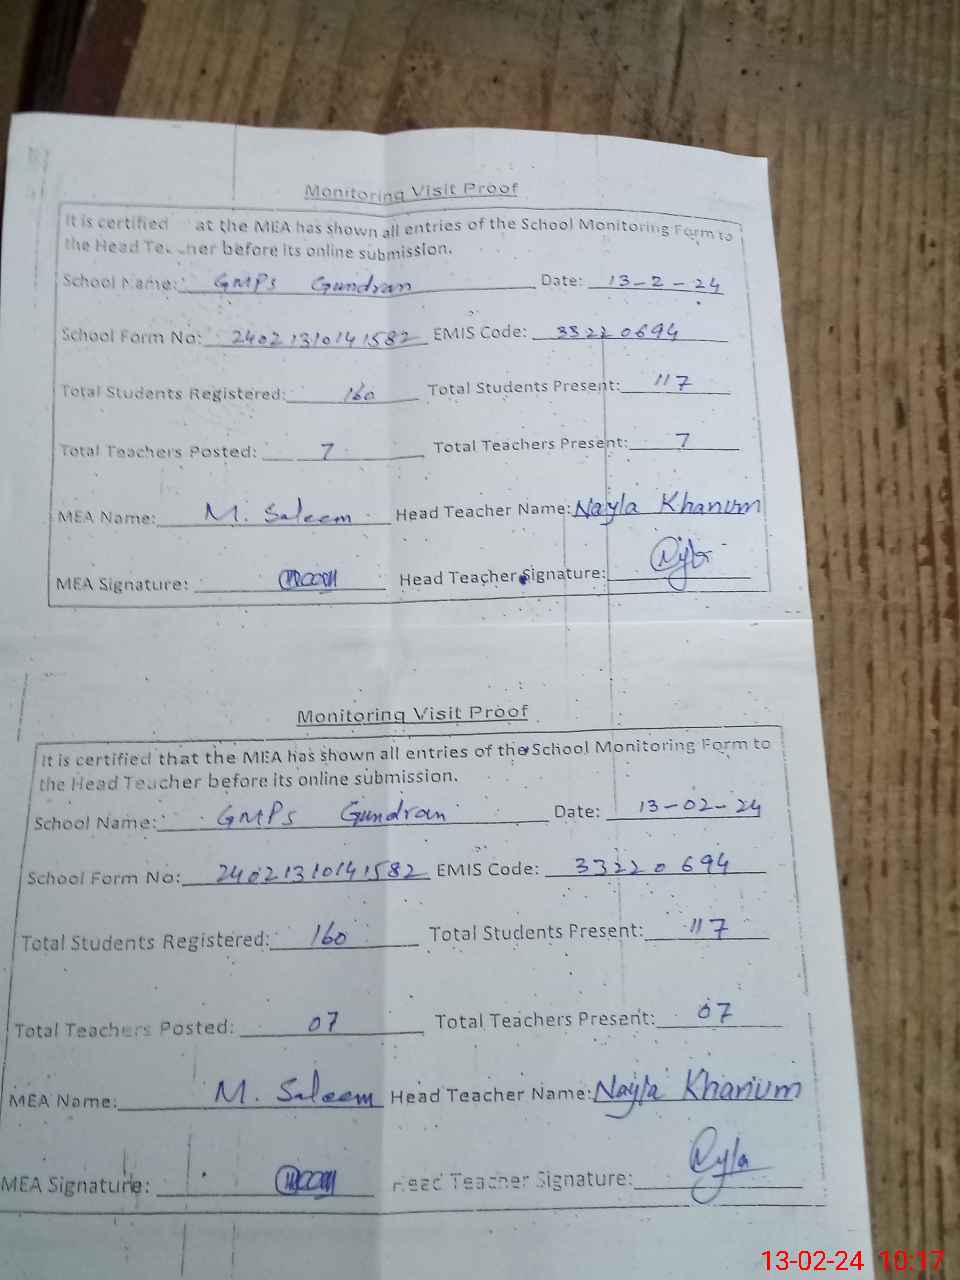 Monitoring Visit Proof
It is certified at the MEA has shown all entries of the School Monitoring Form to
the Head Teacher before its online submission.
School Name: GMPS Gundran Date: 13-2-24
School Form No: 24021310141582 EMIS Code: 33220694
Total Students Registered: 160 Total Students Present: 117
Total Teachers Posted: 7 Total Teachers Present: 7
MEA Name: M. Saleem Head Teacher Name: Nayla Khanum
MEA Signature: Head Teacher Signature: Nyla
Monitoring Visit Proof
It is certified that the MEA has shown all entries of the School Monitoring Form to
the Head Teacher before its online submission.
School Name: GMPS Gundran Date: 13-02-24
School Form No: 24021310141582 EMIS Code: 33220694
Total Students Registered: 160 Total Students Present: 117
Total Teachers Posted: 07 Total Teachers Present: 07
MEA Name: M. Saleem Head Teacher Name: Nayla Khanum
MEA Signature: Head Teacher Signature: Nyla
13-02-24 10:17